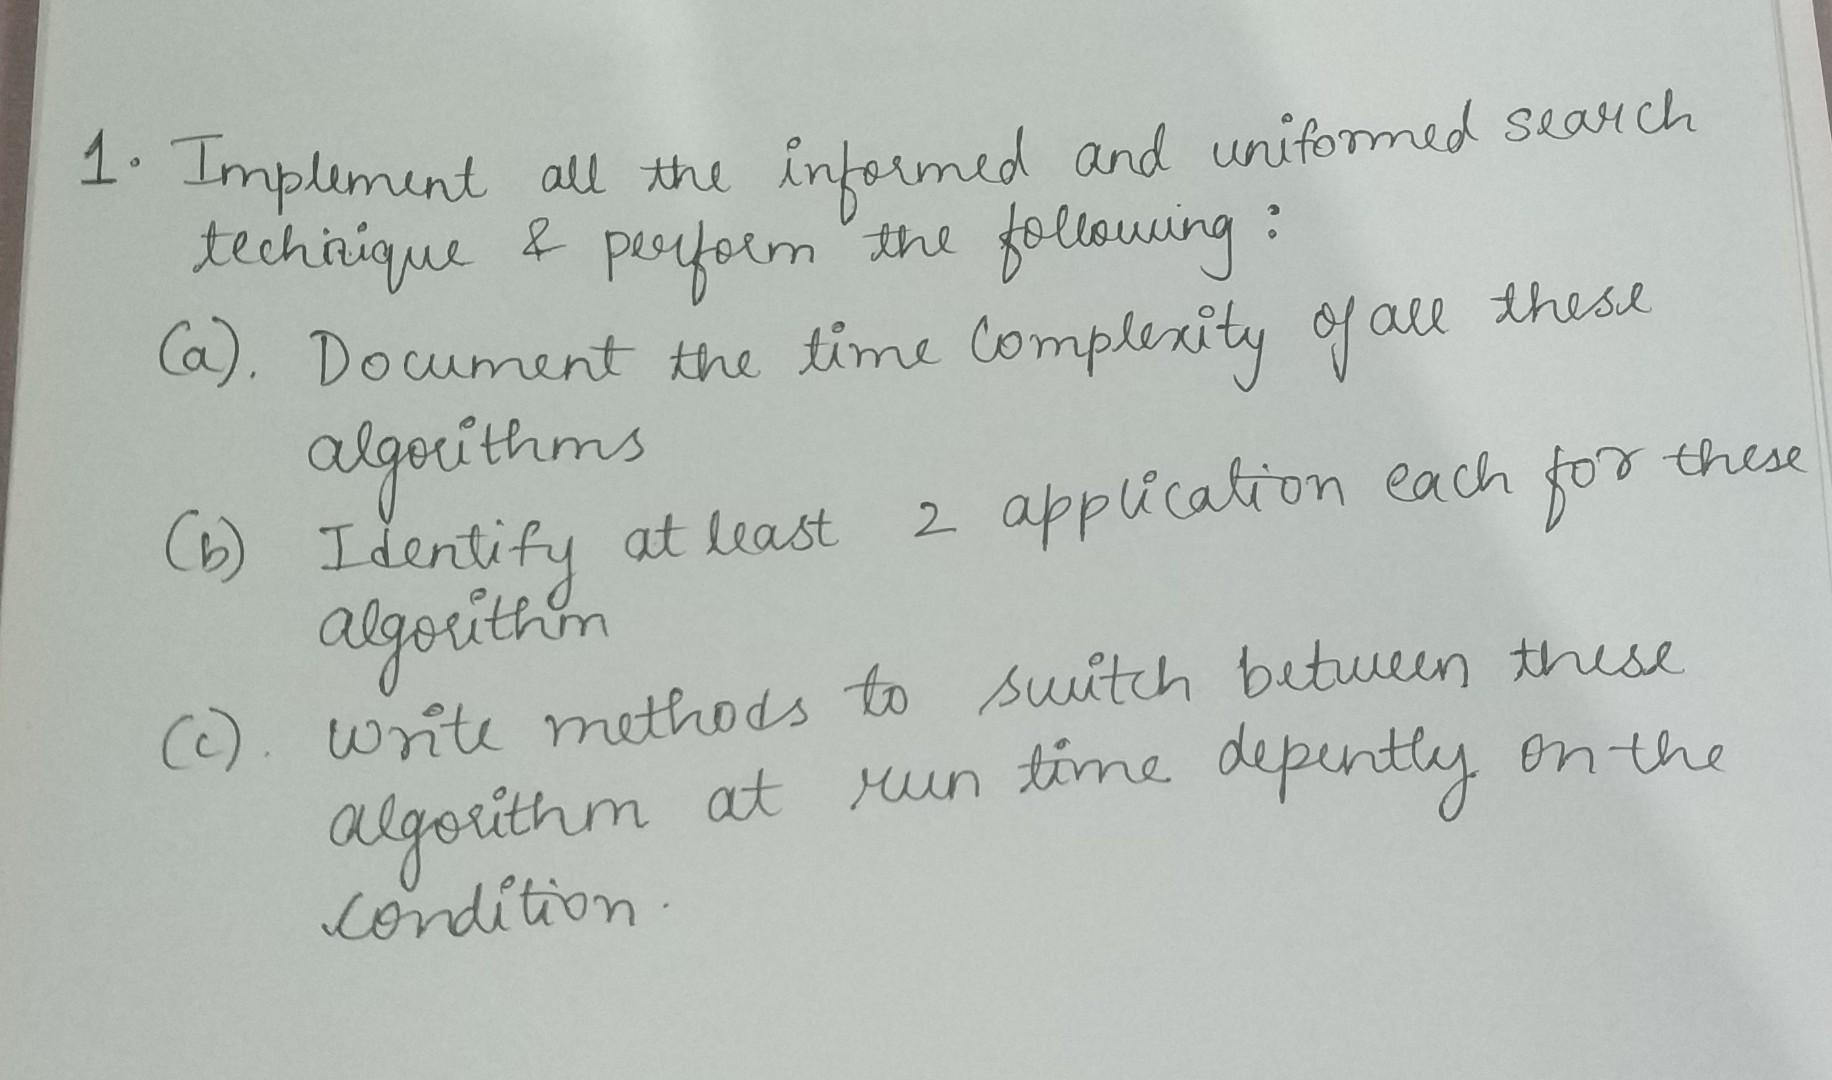 1. Implement all the informed and uniformed search
technique & perform the following :
(a). Document the time Complexity of all these
algorithms
(b) Identify at least 2 application each for these
algorithm
(c). Write methods to switch between these
algorithm at run time depently on the
condition.